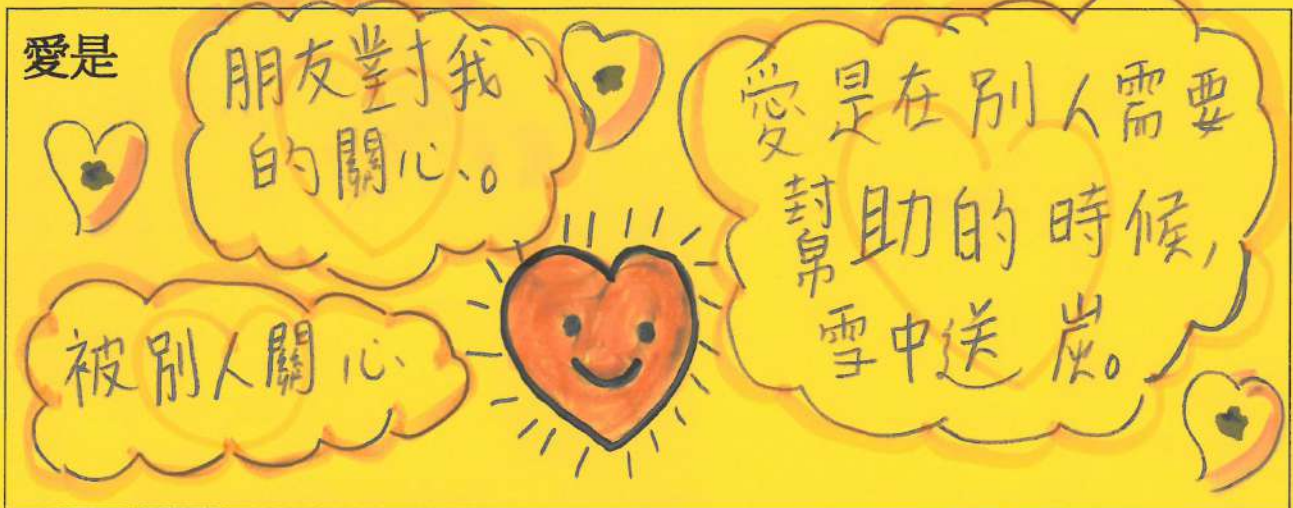 愛是
朋友對我
的關心。
被別人關心
愛是在別人需要
幫助的時候,
雪中送炭。